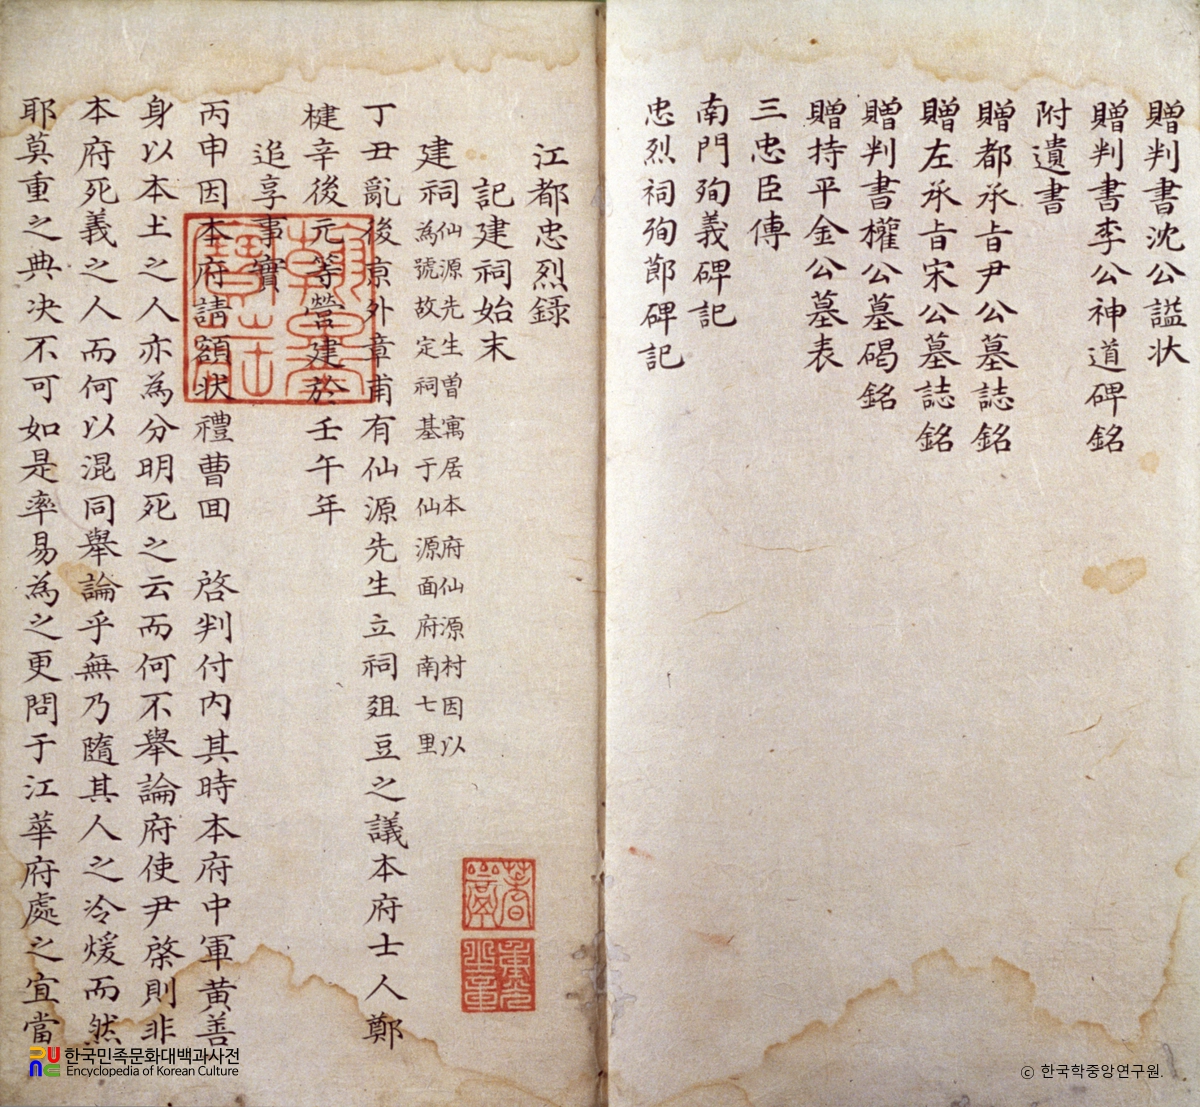 贈判書沈公謚状
贈判書李公神道碑銘
附遺書
贈都承旨尹公墓誌銘
贈左承旨宋公墓誌銘
贈判書權公墓碣銘
贈持平金公墓表
三忠臣傳
南門殉義碑記
忠烈祠殉節碑記
江都忠烈錄
記建祠始末
建祠仙源先生曽寓居本府仙源村因以
為號故定祠基于仙源面府南七里
丁丑亂後京外章甫有仙源先生立祠俎豆之議本府士人鄭
楗辛後元等營建於壬午年
追享事實
丙申因本府請額状禮曹回 啓判付内其時本府中軍黄善
身以本土之人亦為分明死之云而何不舉論府使尹棨則非
本府死義之人而何以混同舉論乎無乃隨其人之冷煖而然
耶莫重之典决不可如是率易為之更問于江華府處之宜當
한국민족문화대백과사전
Encyclopedia of Korean Culture
© 한국학중앙연구원.